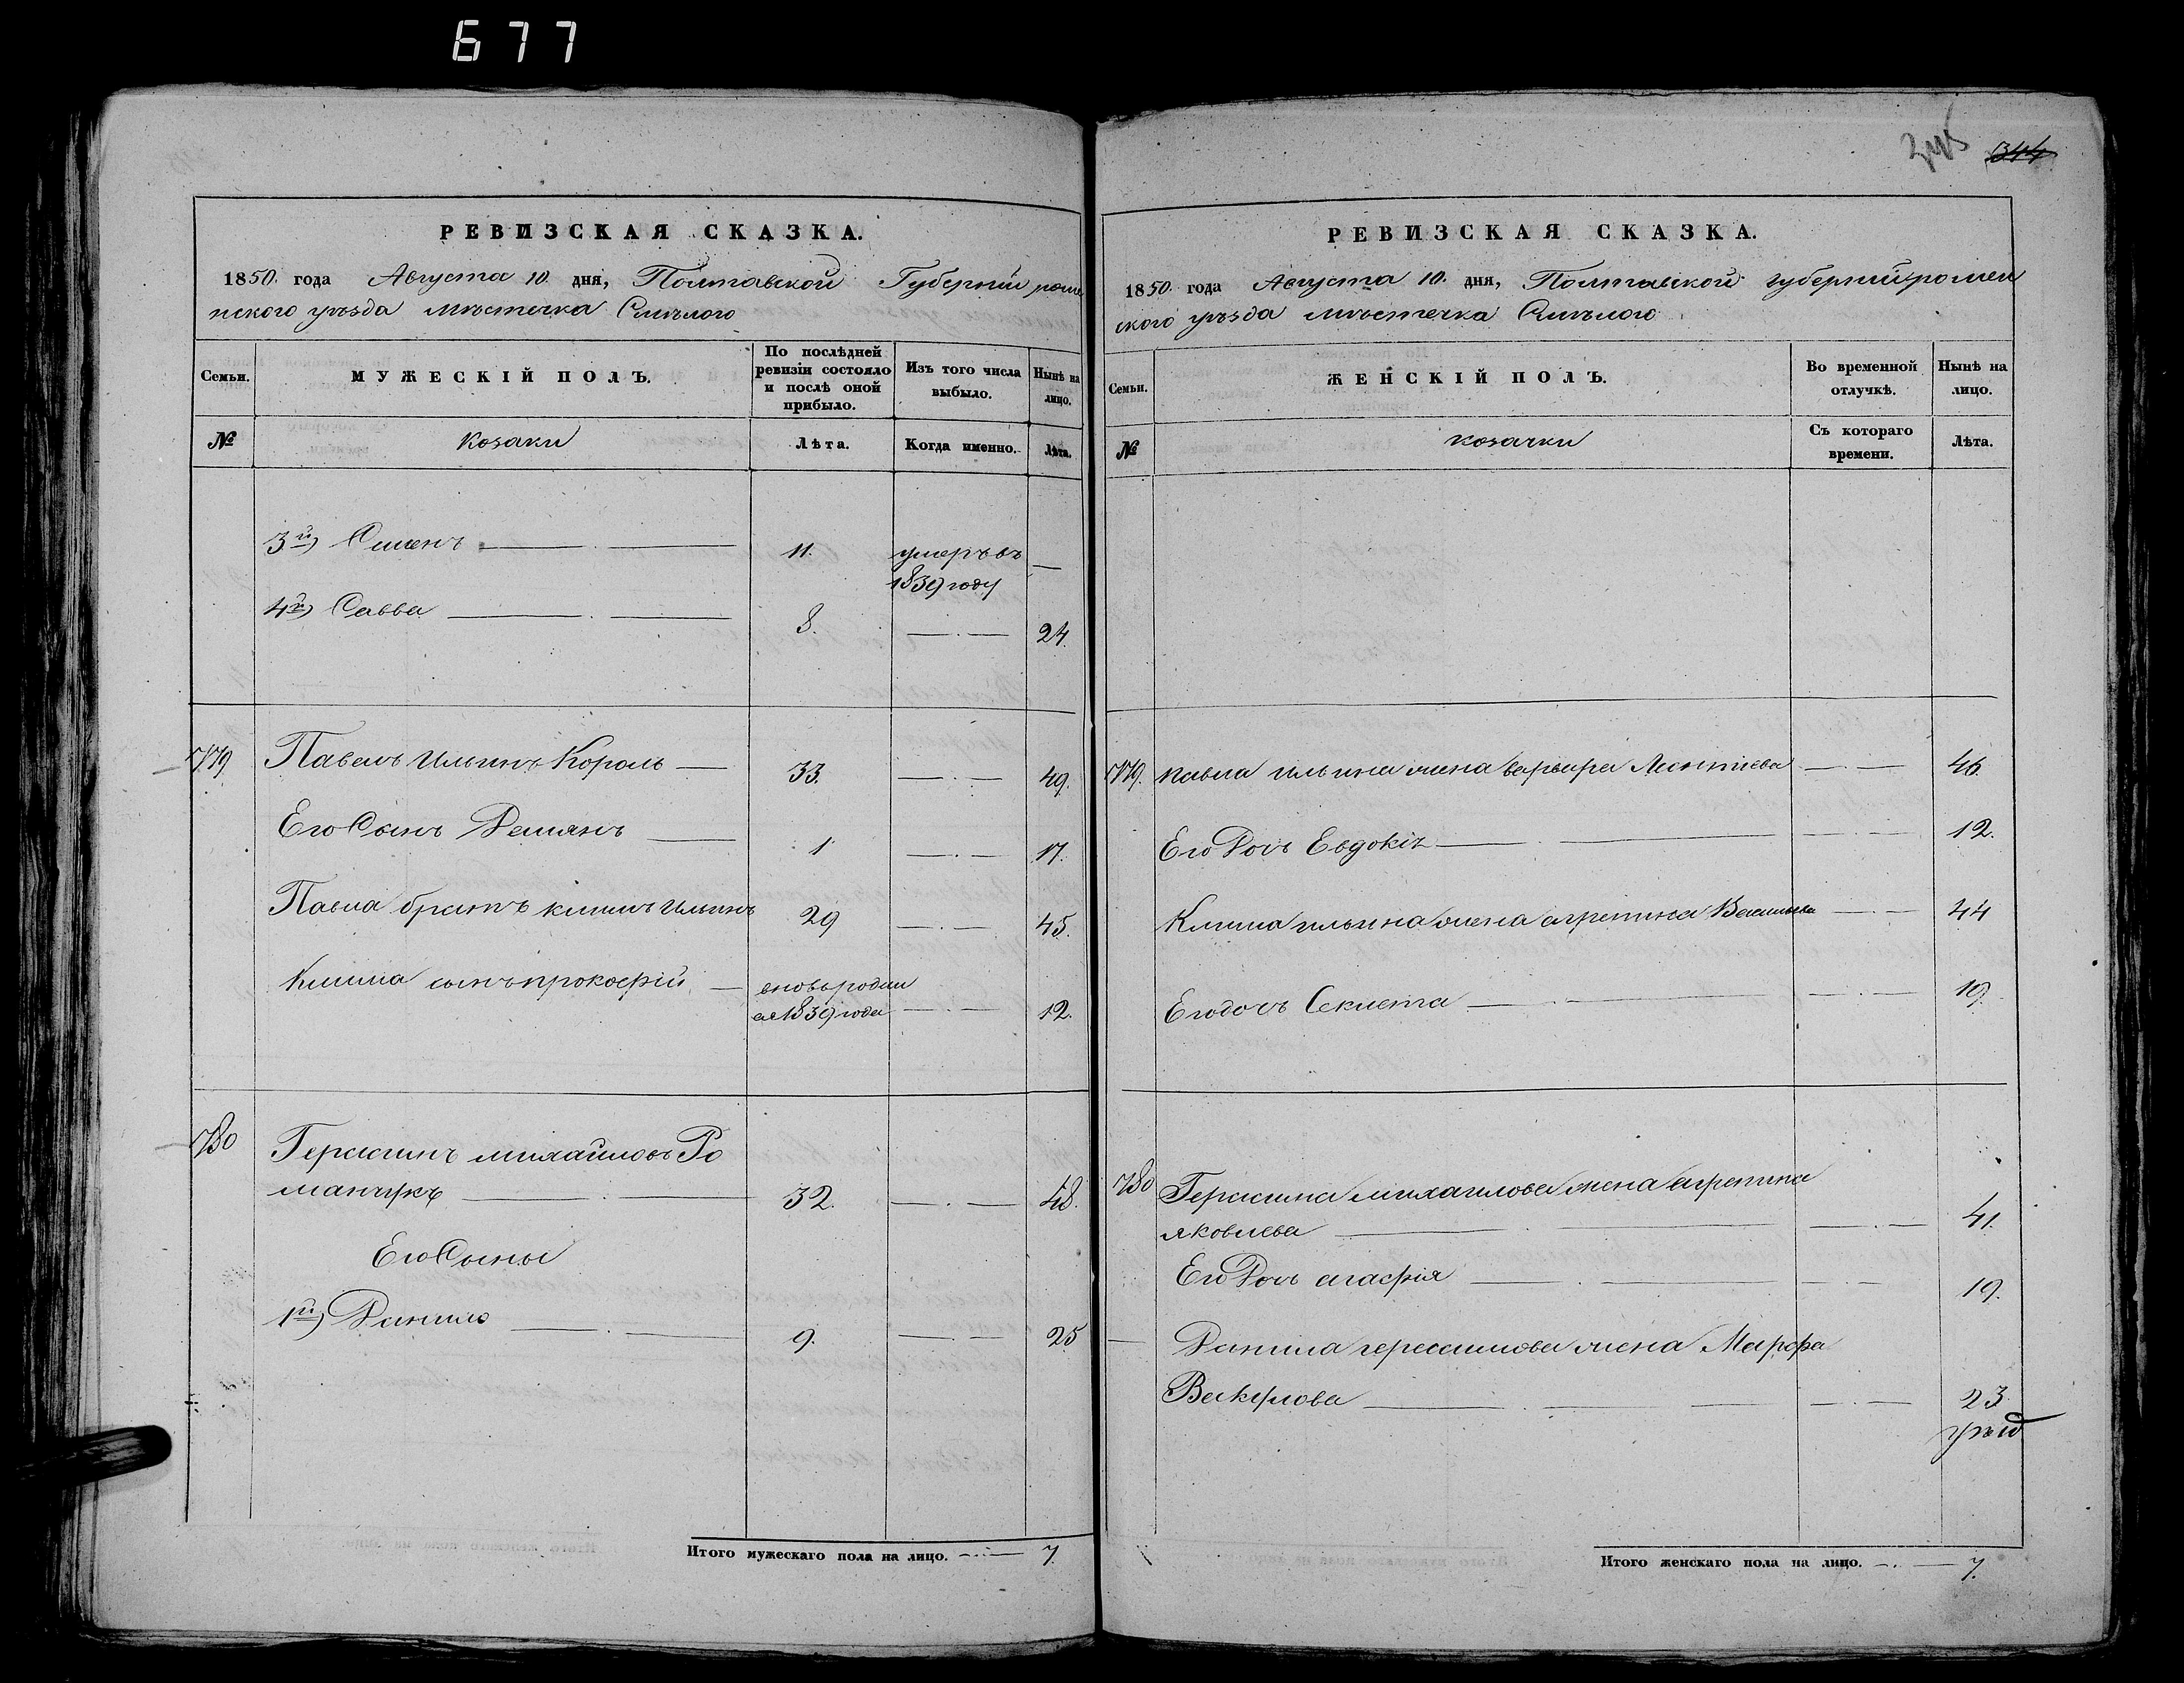 677
РЕВИЗСКАЯ СКАЗКА.
1850. года Августа 10. дня, Полтавской Губерніи роме
нского уѣзда мѣстечка Смѣлого
Семьи. МУЖЕСКІЙ ПОЛЪ. По послѣдней ревизіи состояло и послѣ оной прибыло. Изъ того числа выбыло. Нынѣ на лицо.
№ Козаки Лѣта. Когда именно. Лѣта.
3й) Семенъ — 11. умеръ въ —
1839 году
4й) Савва — 8. — 24.
779 Павелъ Ильинъ Король — 33. — 49.
Его Сынъ Демянъ — 1 — 17.
Павла братъ климъ Ильинъ 29 — 45.
Клима сынъ прокофій — вновь родил
ся 1839 года — 12.
780 Герасимъ михайловъ Ро
манчукъ — 32. — 48.
Его Сыны
1й) Данило — 9. — 25
Итого мужескаго пола на лицо. — 7.
345 344
РЕВИЗСКАЯ СКАЗКА.
1850. года Августа 10. дня, Полтавской губерніи ромен
ского уѣзда мѣстечка Смѣлого
Семьи. ЖЕНСКІЙ ПОЛЪ. Во временной отлучкѣ. Нынѣ на лицо.
№ козачки Съ котораго времени. Лѣта.
779. павла ильина жена варвара Леонтіева — 46.
Его Дочь Евдокія — 12.
Клима ильина жена агрепина Васильева — 44
Его дочь Секлета — 19.
780 Герасима михаилова жена агрепина
яковлева — 41.
Его Дочь агафія — 19.
Данила герасимова жена Марфа
Вакулова — 23.
Итого женскаго пола на лицо. — 7.